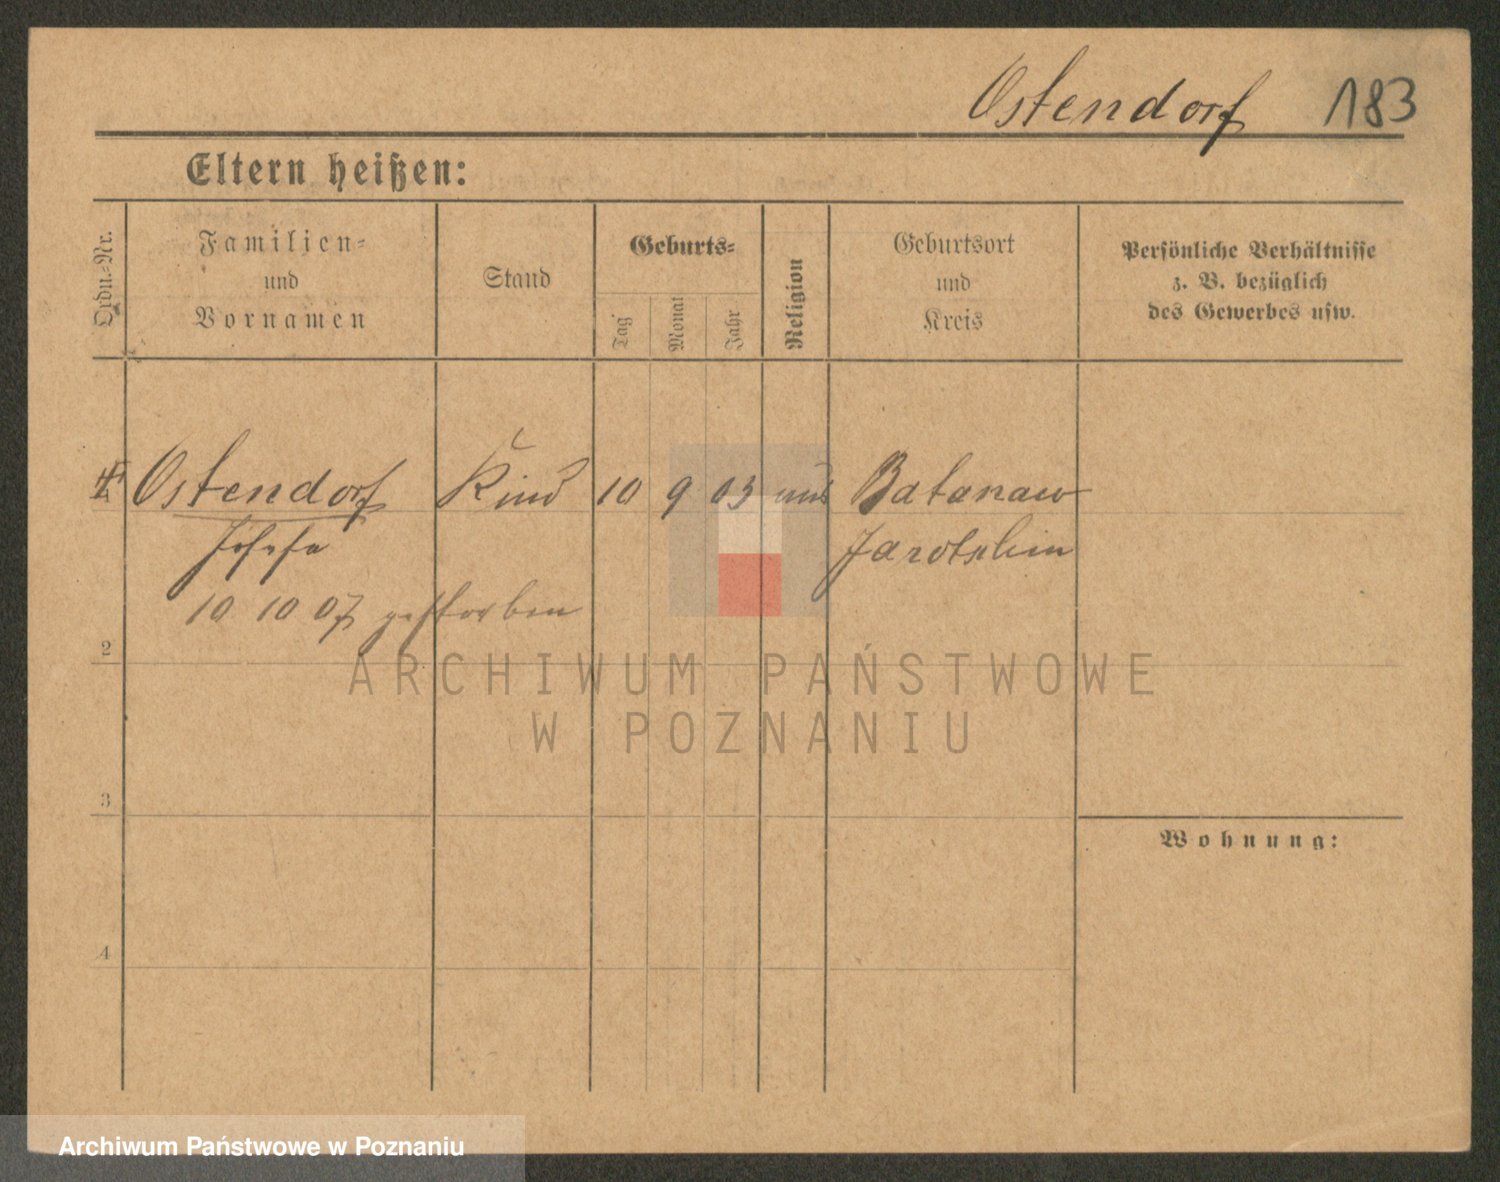 Ostendorf 183
Eltern heißen:
Ordn.-Nr.
Familien-
und
Vornamen
Stand
Geburts-
Tag
Monat
Jahr
Religion
Geburtsort
und
Kreis
Persönliche Verhältnisse
z. B. bezüglich
des Gewerbes usw.
Ostendorf Kind 10 9 03 Batanaw
Josefa
10 10 07 gestorben
2
3
4
Wohnung:
ARCHIWUM PAŃSTWOWE
W POZNANIU
Archiwum Państwowe w Poznaniu